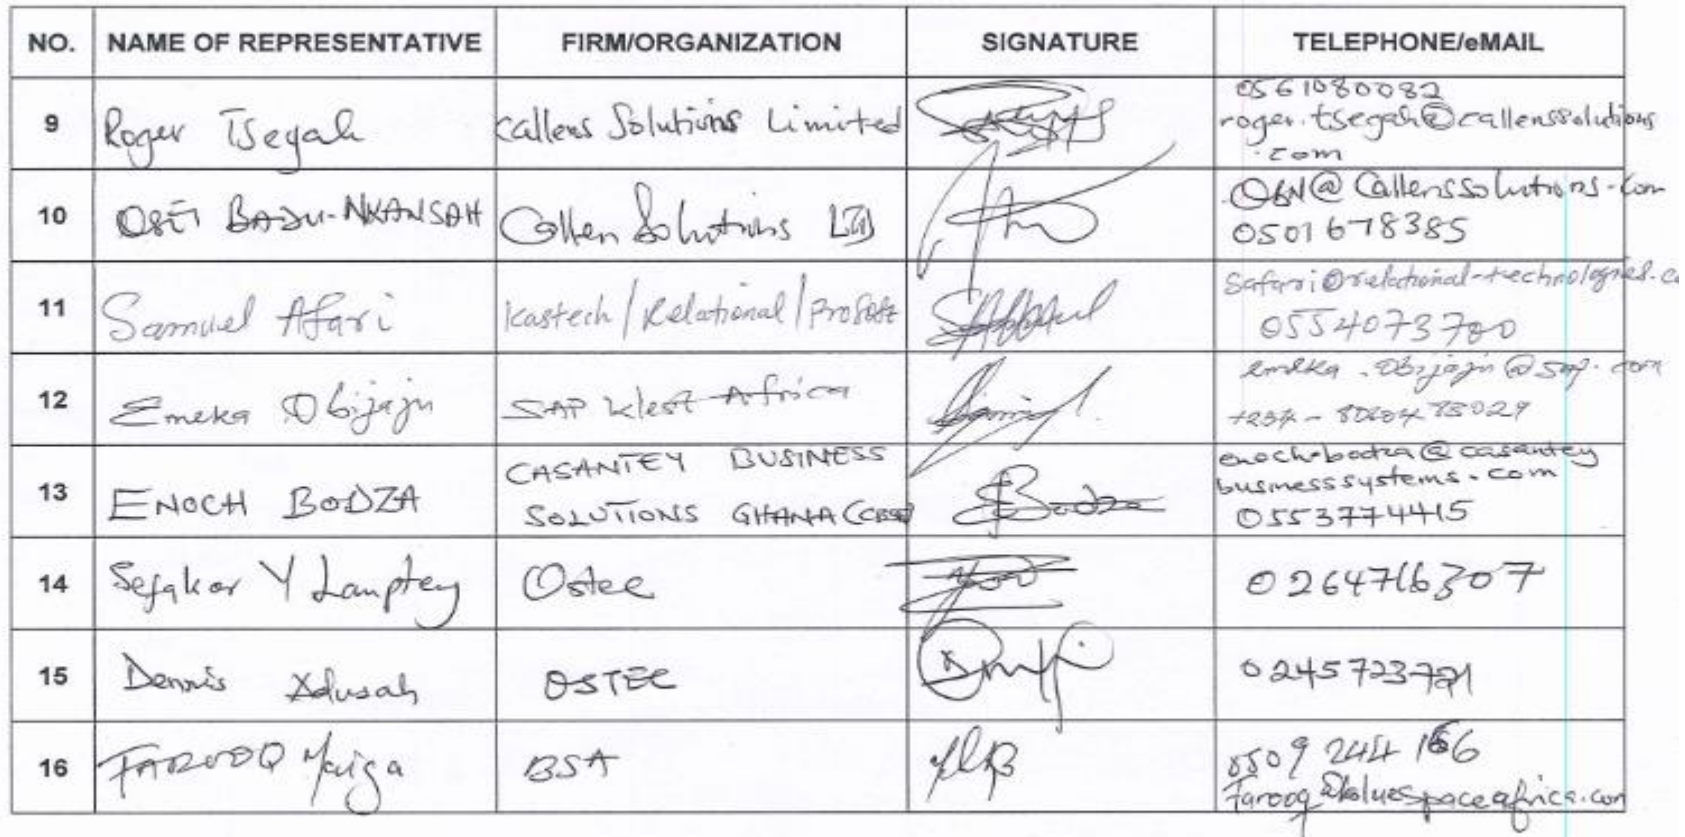 NO. NAME OF REPRESENTATIVE FIRM/ORGANIZATION SIGNATURE TELEPHONE/eMAIL
9 Roger Tsegah Callens Solutions Limited 0561080082
roger.tsegah@callenssolutions
.com
10 OSEI BADU-NKANSAH Callen Solutions LTD OBN@Callenssolutions.com
0501678385
11 Samuel Afari Kastech/Relational/ safari@relational-technologies.c
0554073700
12 Emeka Obijaju SAP West Africa emeka.obijaju@sap.com
13 ENOCH BODZA CASANTEY BUSINESS
SOLUTIONS GHANA (CBSG) Bodza enoch.bodza@casantey
businesssystems.com
0553774415
14 Sefakor Y Lamptey Ostec 0264716307
15 Dennis Adusah OSTEC
16 FAROOQ Maiga BSA